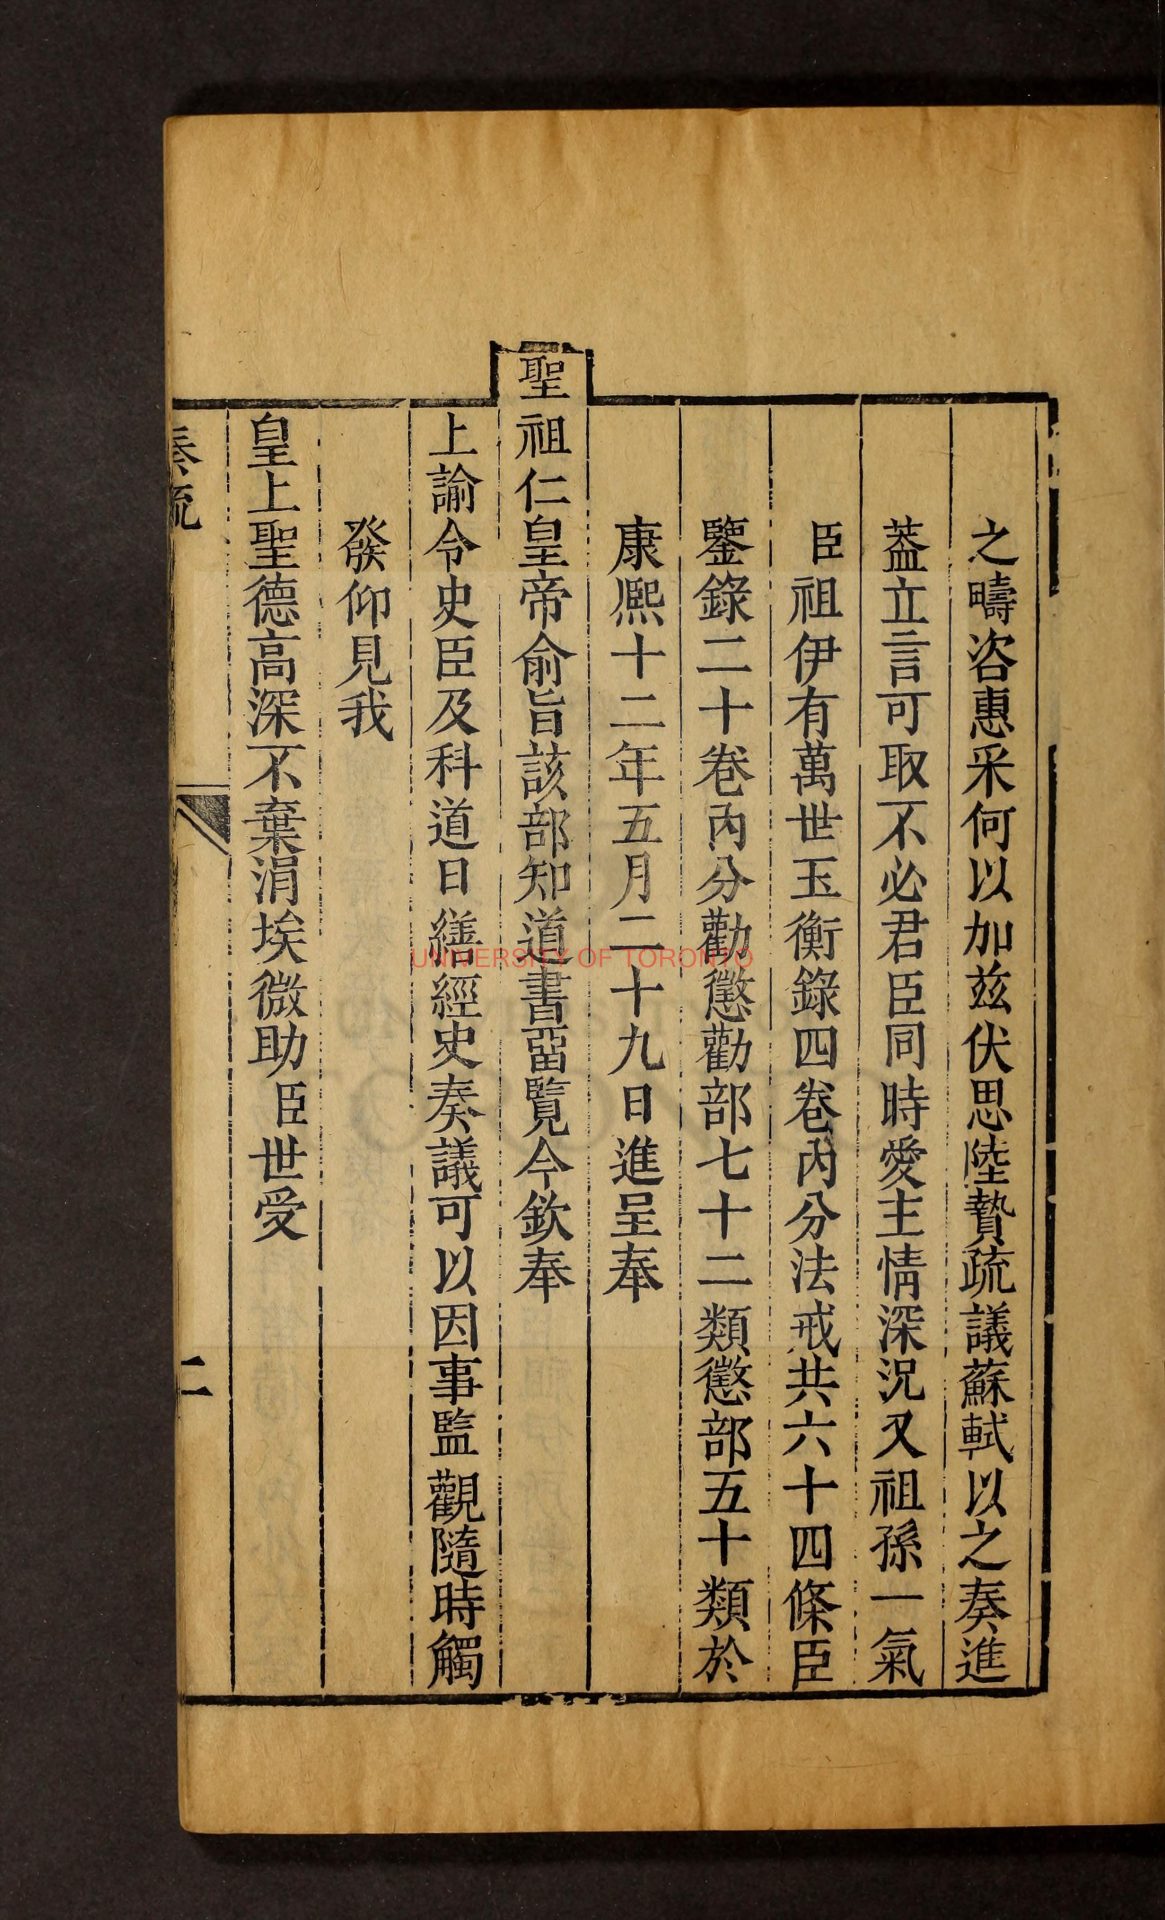 之疇咨惠采何以加茲伏思陸贄疏議蘇軾以之奏進
葢立言可取不必君臣同時愛主情深況又祖孫一氣
臣祖伊有萬世玉衡錄四卷內分法戒共六十四條臣
鑒錄二十卷內分勸懲勸部七十二類懲部五十類於
康熙十二年五月二十九日進呈奉
聖祖仁皇帝俞旨該部知道書畱覽今欽奉
上諭令史臣及科道日繕經史奏議可以因事監觀隨時觸
發仰見我
皇上聖德高深不棄涓埃微助臣世受
奏疏
二
UNIVERSITY OF TORONTO